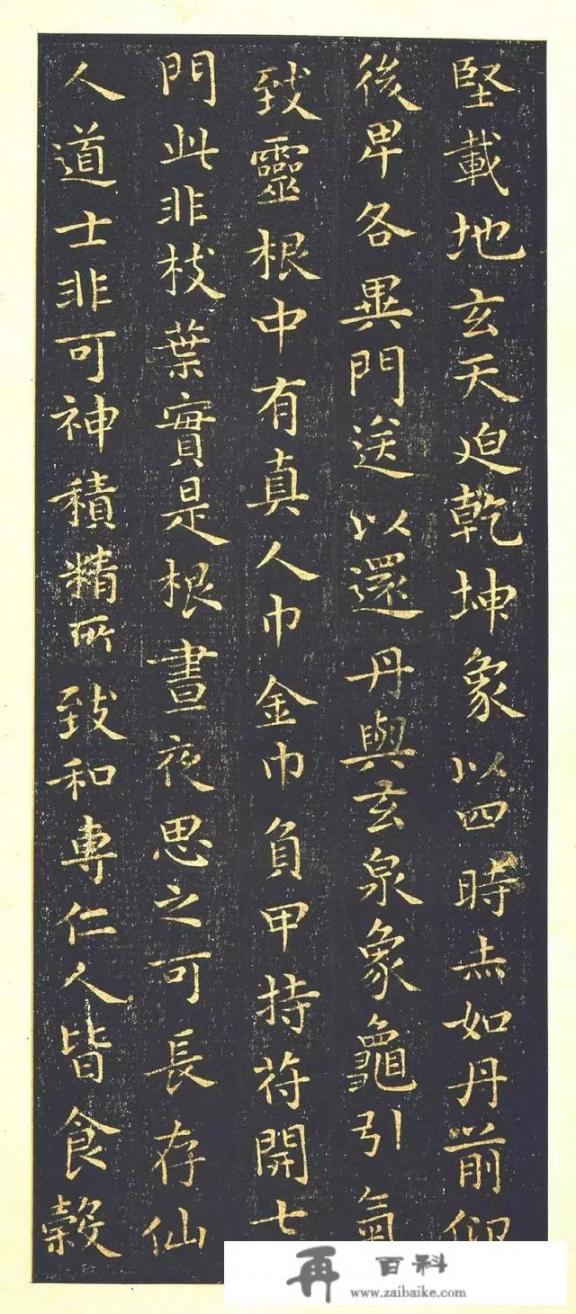 堅載地玄天迫乾坤象以四時赤如丹前仰
後卑各異門送以還丹與玄泉象龜引氣
致靈根中有真人巾金巾負甲持符開七
門此非枝葉實是根晝夜思之可長存仙
人道士非可神積精所致和專仁人皆食穀
再百科
www.zaibaike.com